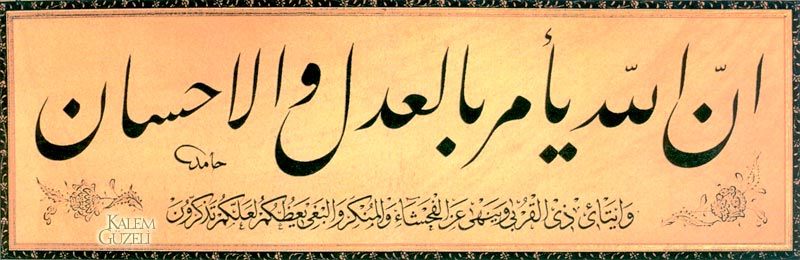 انّ الله يأمر بالعدل والاحسان
حامد
وَاِيتَائِ ذِى الْقُرْبٰى وَيَنْهٰى عَنِ الْفَحْشَاءِ وَالْمُنْكَرِ وَالْبَغْىِ يَعِظُكُمْ لَعَلَّكُمْ تَذَكَّرُونَ
KALEM
GÜZELİ